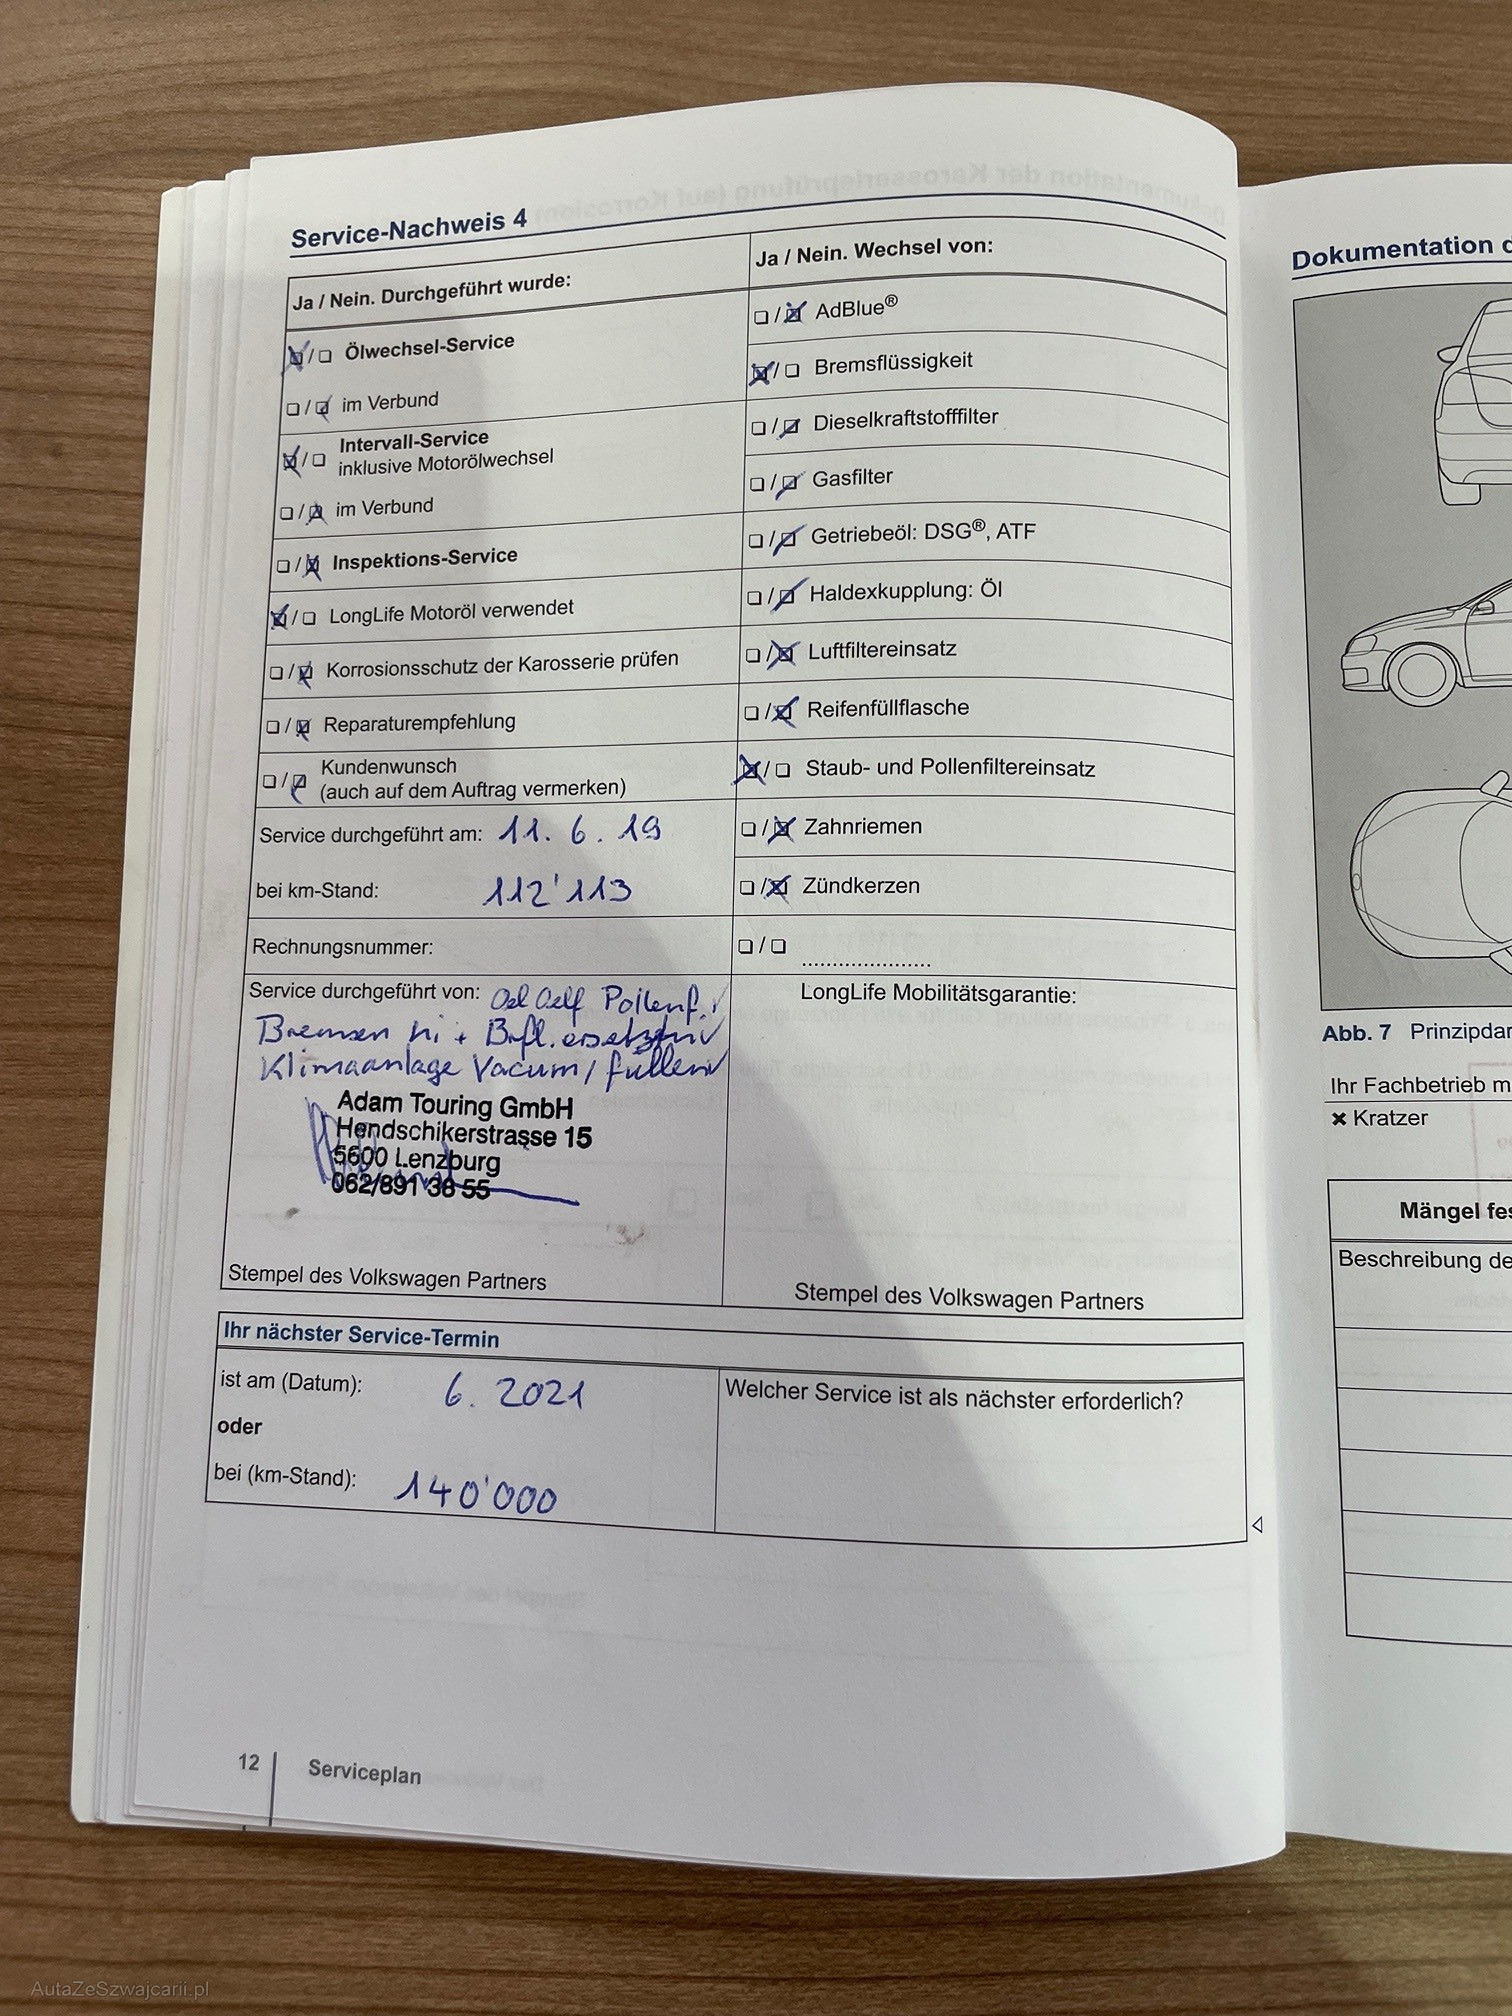 Service-Nachweis 4
Ja / Nein. Durchgeführt wurde:
☒/☐ Ölwechsel-Service
☐/☒ im Verbund
☒/☐ Intervall-Service
inklusive Motorölwechsel
☐/☒ im Verbund
☐/☒ Inspektions-Service
☒/☐ LongLife Motoröl verwendet
☐/☒ Korrosionsschutz der Karosserie prüfen
☐/☒ Reparaturempfehlung
☐/☒ Kundenwunsch
(auch auf dem Auftrag vermerken)
Service durchgeführt am: 11. 6. 19
bei km-Stand: 112'113
Rechnungsnummer:
Service durchgeführt von: Oel Oelf Pollenf.
Bremsen hi + Brfl. ersetzen
Klimaanlage Vacum / füllen
Adam Touring GmbH
Hendschikerstrasse 15
5600 Lenzburg
062/891 38 55
Stempel des Volkswagen Partners
Ja / Nein. Wechsel von:
☐/☒ AdBlue®
☒/☐ Bremsflüssigkeit
☐/☒ Dieselkraftstofffilter
☐/☒ Gasfilter
☐/☒ Getriebeöl: DSG®, ATF
☐/☒ Haldexkupplung: Öl
☐/☒ Luftfiltereinsatz
☐/☒ Reifenfüllflasche
☒/☐ Staub- und Pollenfiltereinsatz
☐/☒ Zahnriemen
☐/☒ Zündkerzen
☐/☐ ......................
LongLife Mobilitätsgarantie:
Stempel des Volkswagen Partners
Ihr nächster Service-Termin
ist am (Datum): 6. 2021
oder
bei (km-Stand): 140'000
Welcher Service ist als nächster erforderlich?
12 Serviceplan
Dokumentation d
Abb. 7 Prinzipdar
Ihr Fachbetrieb m
✖ Kratzer
Mängel fes
Beschreibung de
AutaZeSzwajcarii.pl